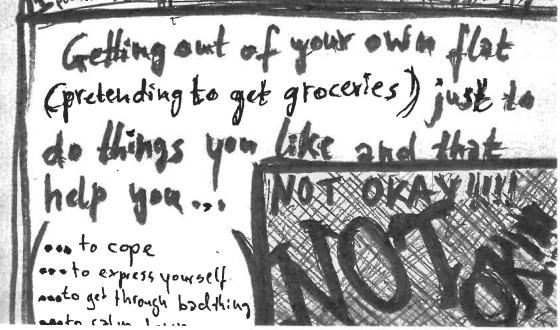 Getting out of your own flat
(pretending to get groceries) just to
do things you like and that
help you...
... to cope
... to express yourself
... to get through bad thing
... to calm down
NOT OKAY!!!!
NOT
OKAY